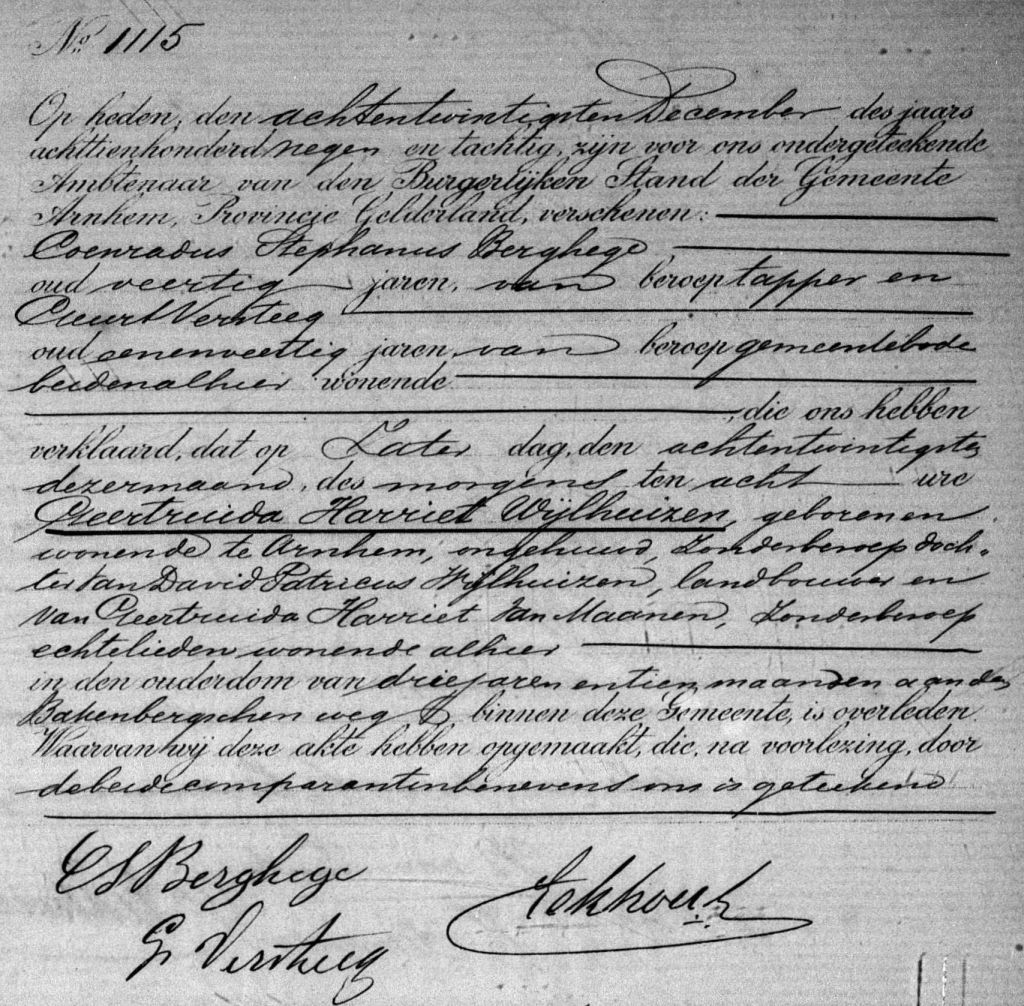 No. 1115
Op heden, den achtentwintigsten December des jaars
achttienhonderd negen en tachtig, zijn voor ons ondergeteekende
Ambtenaar van den Burgerlijken Stand der Gemeente
Arnhem, Provincie Gelderland, verschenen:
Coenradus Stephanus Berghege,
oud veertig jaren, van beroep tapper en
Geurt Versteeg
oud eenenveertig jaren, van beroep gemeentebode
beiden alhier wonende
, die ons hebben
verklaard, dat op Zater dag, den achtentwintigsten
dezer maand, des morgens ten acht ure
Geertruida Harriet Wijlhuizen, geboren en
wonende te Arnhem, ongehuwd, zonder beroep doch-
ter van David Patricus Wijlhuizen, landbouwer en
van Geertruida Harriet van Maanen, zonder beroep
echtelieden wonende alhier
in den ouderdom van drie jaren en tien maanden aan den
Bakenbergschen weg, binnen deze Gemeente, is overleden.
Waarvan wij deze akte hebben opgemaakt, die, na voorlezing, door
de beide comparanten benevens ons is geteekend
CS Berghege
G Versteeg
Eekhout